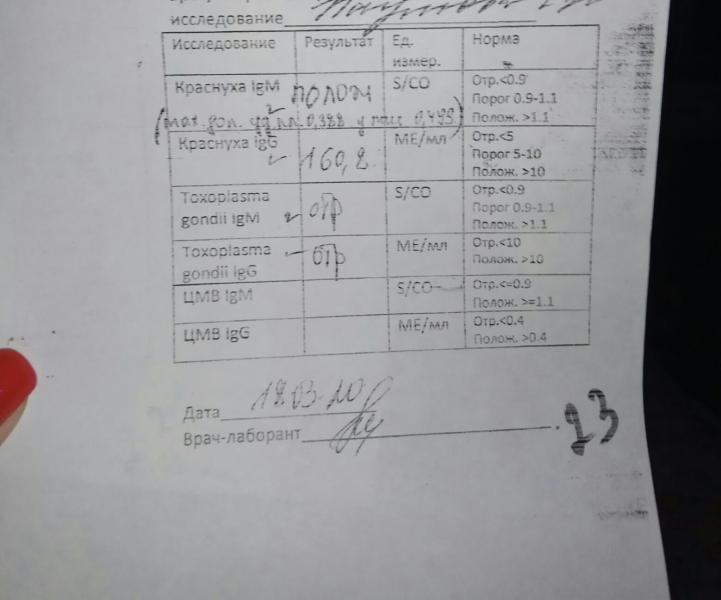 исследование
Исследование Результат Ед. измер. Норма
Краснуха IgM полож S/CO Отр.<0.9
Порог 0.9-1.1
Полож. >1.1
0,388 у 0,499)
Краснуха IgG 160,2 МЕ/мл Отр.<5
Порог 5-10
Полож. >10
Toxoplasma gondii IgM отр S/CO Отр.<0.9
Порог 0.9-1.1
Полож. >1.1
Toxoplasma gondii IgG отр МЕ/мл Отр.<10
Полож. >10
ЦМВ IgM S/CO Отр.<=0.9
Полож. >=1.1
ЦМВ IgG МЕ/мл Отр.<0.4
Полож. >0.4
Дата 18.03.20
Врач-лаборант
23